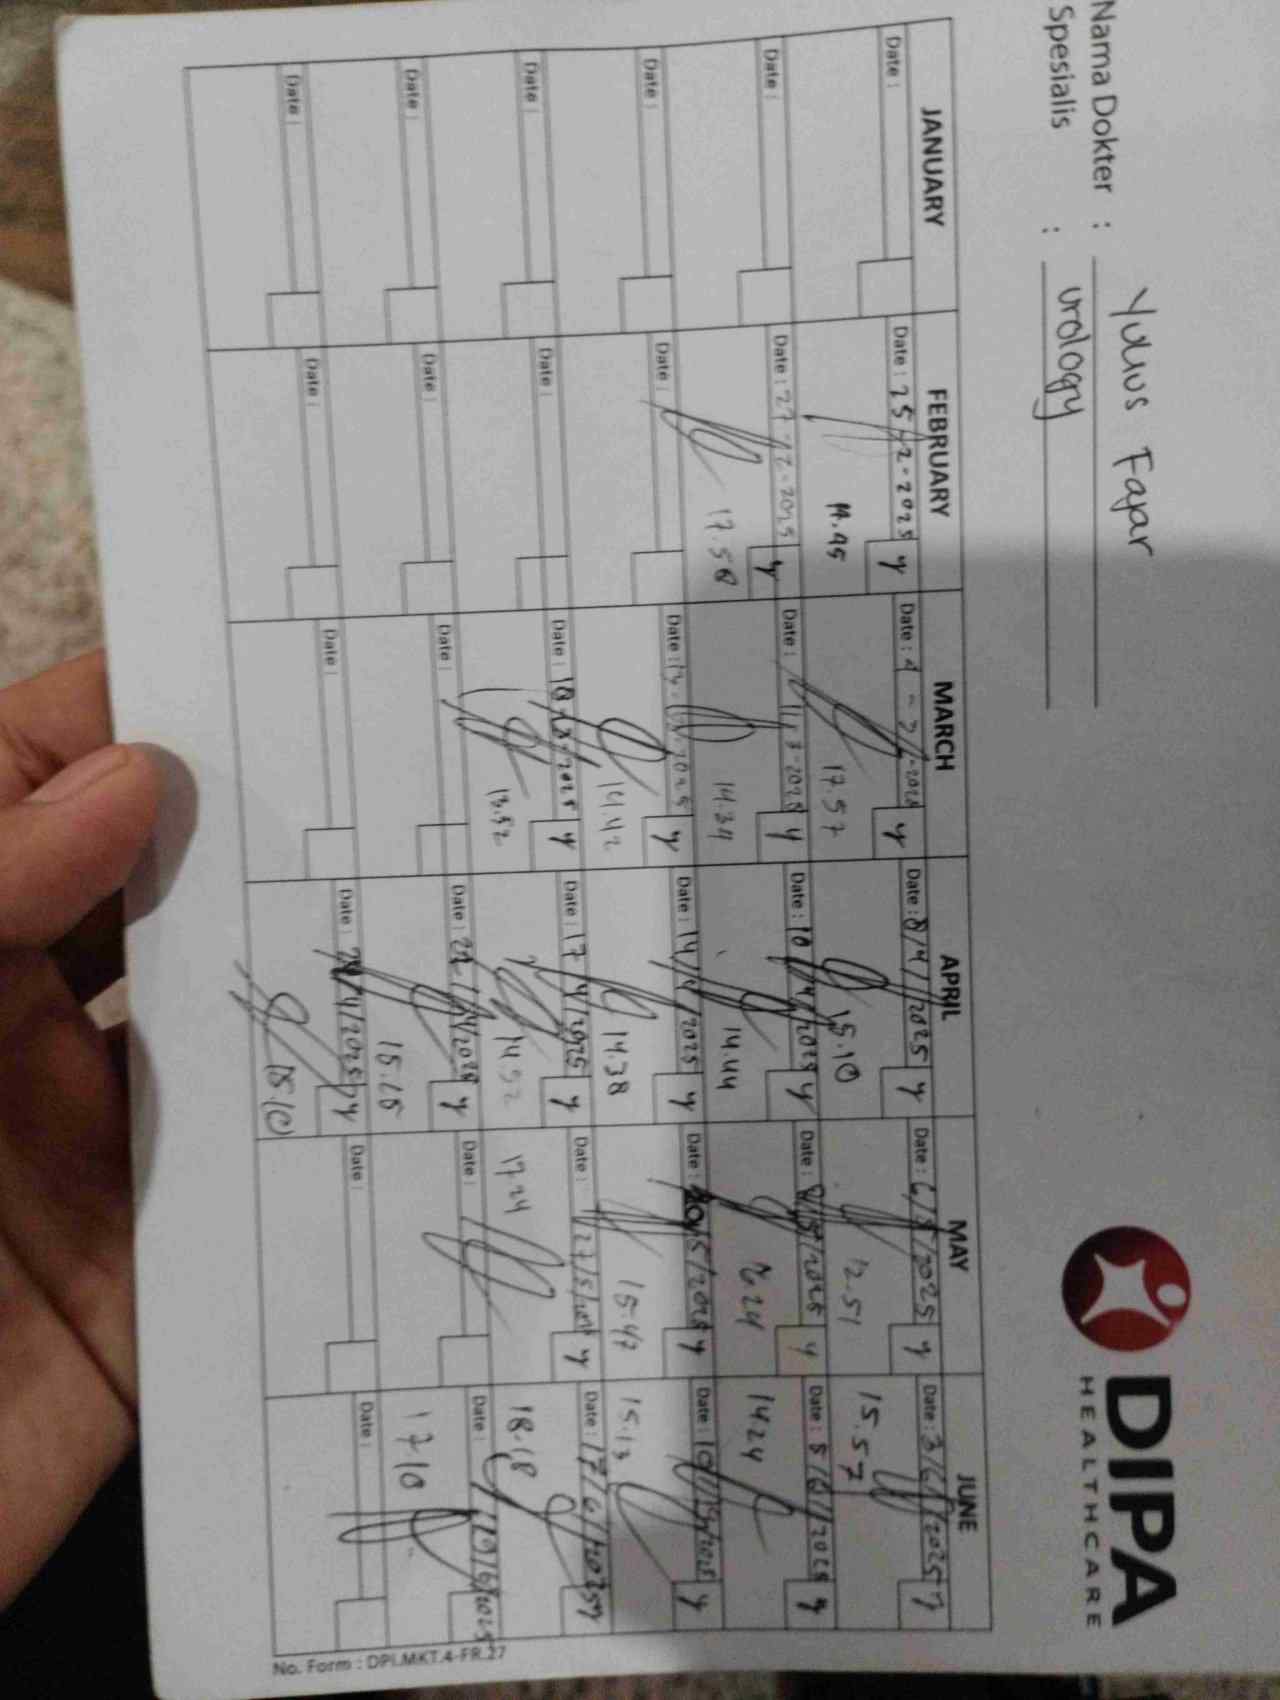 DIPA
HEALTHCARE
Nama Dokter : Yulius Fajar
Spesialis : urology
JANUARY FEBRUARY MARCH APRIL MAY JUNE
Date : Date : 25-2-2025 y Date : 4-3-2025 y Date : 8/4/2025 y Date : 6/5/2025 y Date : 3/6/2025 y
14.45 17.57 15.10 12.51 15.57
Date : Date : 27-2-2025 y Date : 11-3-2025 y Date : 10/4/2025 y Date : 8/5/2025 y Date : 5/6/2025 y
17.58 14.34 14.44 1424
Date : Date : Date : 13-3-2025 y Date : 14/4/2025 y Date : 20/5/2025 y Date : 10/6/2025 y
14.42 14.38 15.47 15.13
Date : Date : Date : 18-3-2025 y Date : 17/4/2025 y Date : 27/5/2025 y Date : 17/6/2025 y
13.52 14.52 17.24 18.18
Date : Date : Date : Date : 22/4/2025 y Date : Date : 19/6/2025
15.15 1710
Date : Date : Date : Date : /4/2025 y Date : Date :
15.10
No. Form : DPI.MKT.4-FR.27